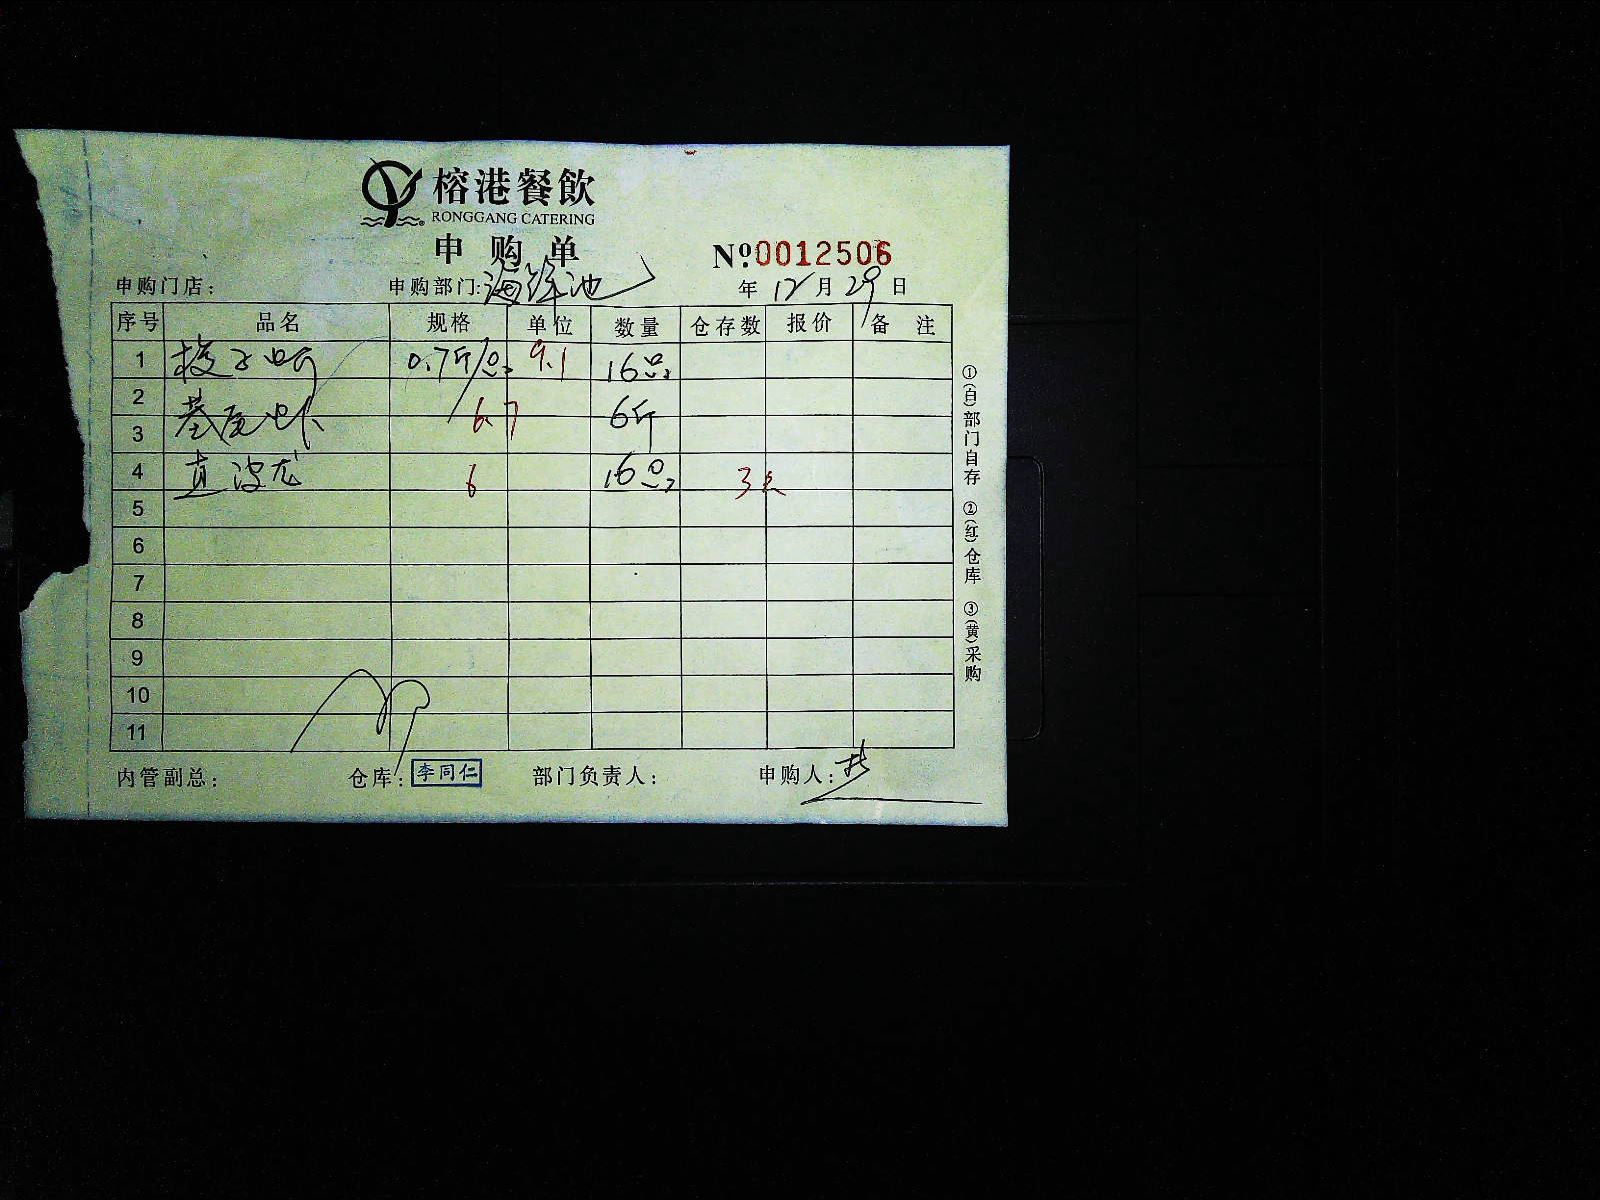 榕港餐飲
RONGGANG CATERING
申购单
№0012506
申购门店： 申购部门：海鲜池 年 12 月 29 日
序号 品名 规格 单位 数量 仓存数 报价 备注
1 0.7斤/只 9.1 16只
2 基尾虾 6.7 6斤
3
4 直波龙 6 16只 3点
5
6
7
8
9
10
11
①(白)部门自存 ②(红)仓库 ③(黄)采购
内管副总： 仓库：李同仁 部门负责人： 申购人：